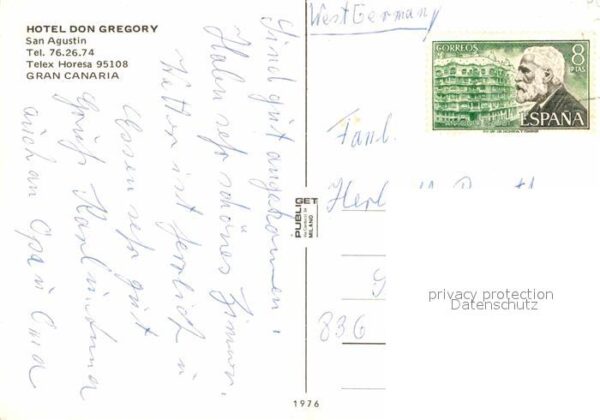 HOTEL DON GREGORY
San Agustin
Tel. 76.26.74
Telex Horesa 95108
GRAN CANARIA
Sind gut angekommen,
Haben sehr schönes Zimmer,
Wetter ist herrlich u
Essen sehr gut
Gruß Karl u
auch an Opa u Oma
West Germany
CORREOS
8
PTAS
ESPAÑA
Fam.
836
PUBLIGET
MILANO
privacy protection
Datenschutz
1976